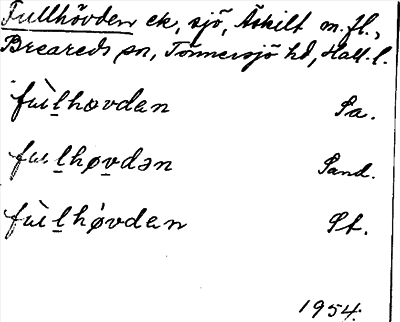 Fullhövden ek, sjö, Äskilt m.fl.,
Breareds sn, Tönnersjö hd, Hall. l.
fùlhøvdan Sa.
fùlhøvdən Sand.
fùlhøvdan St.
1954.